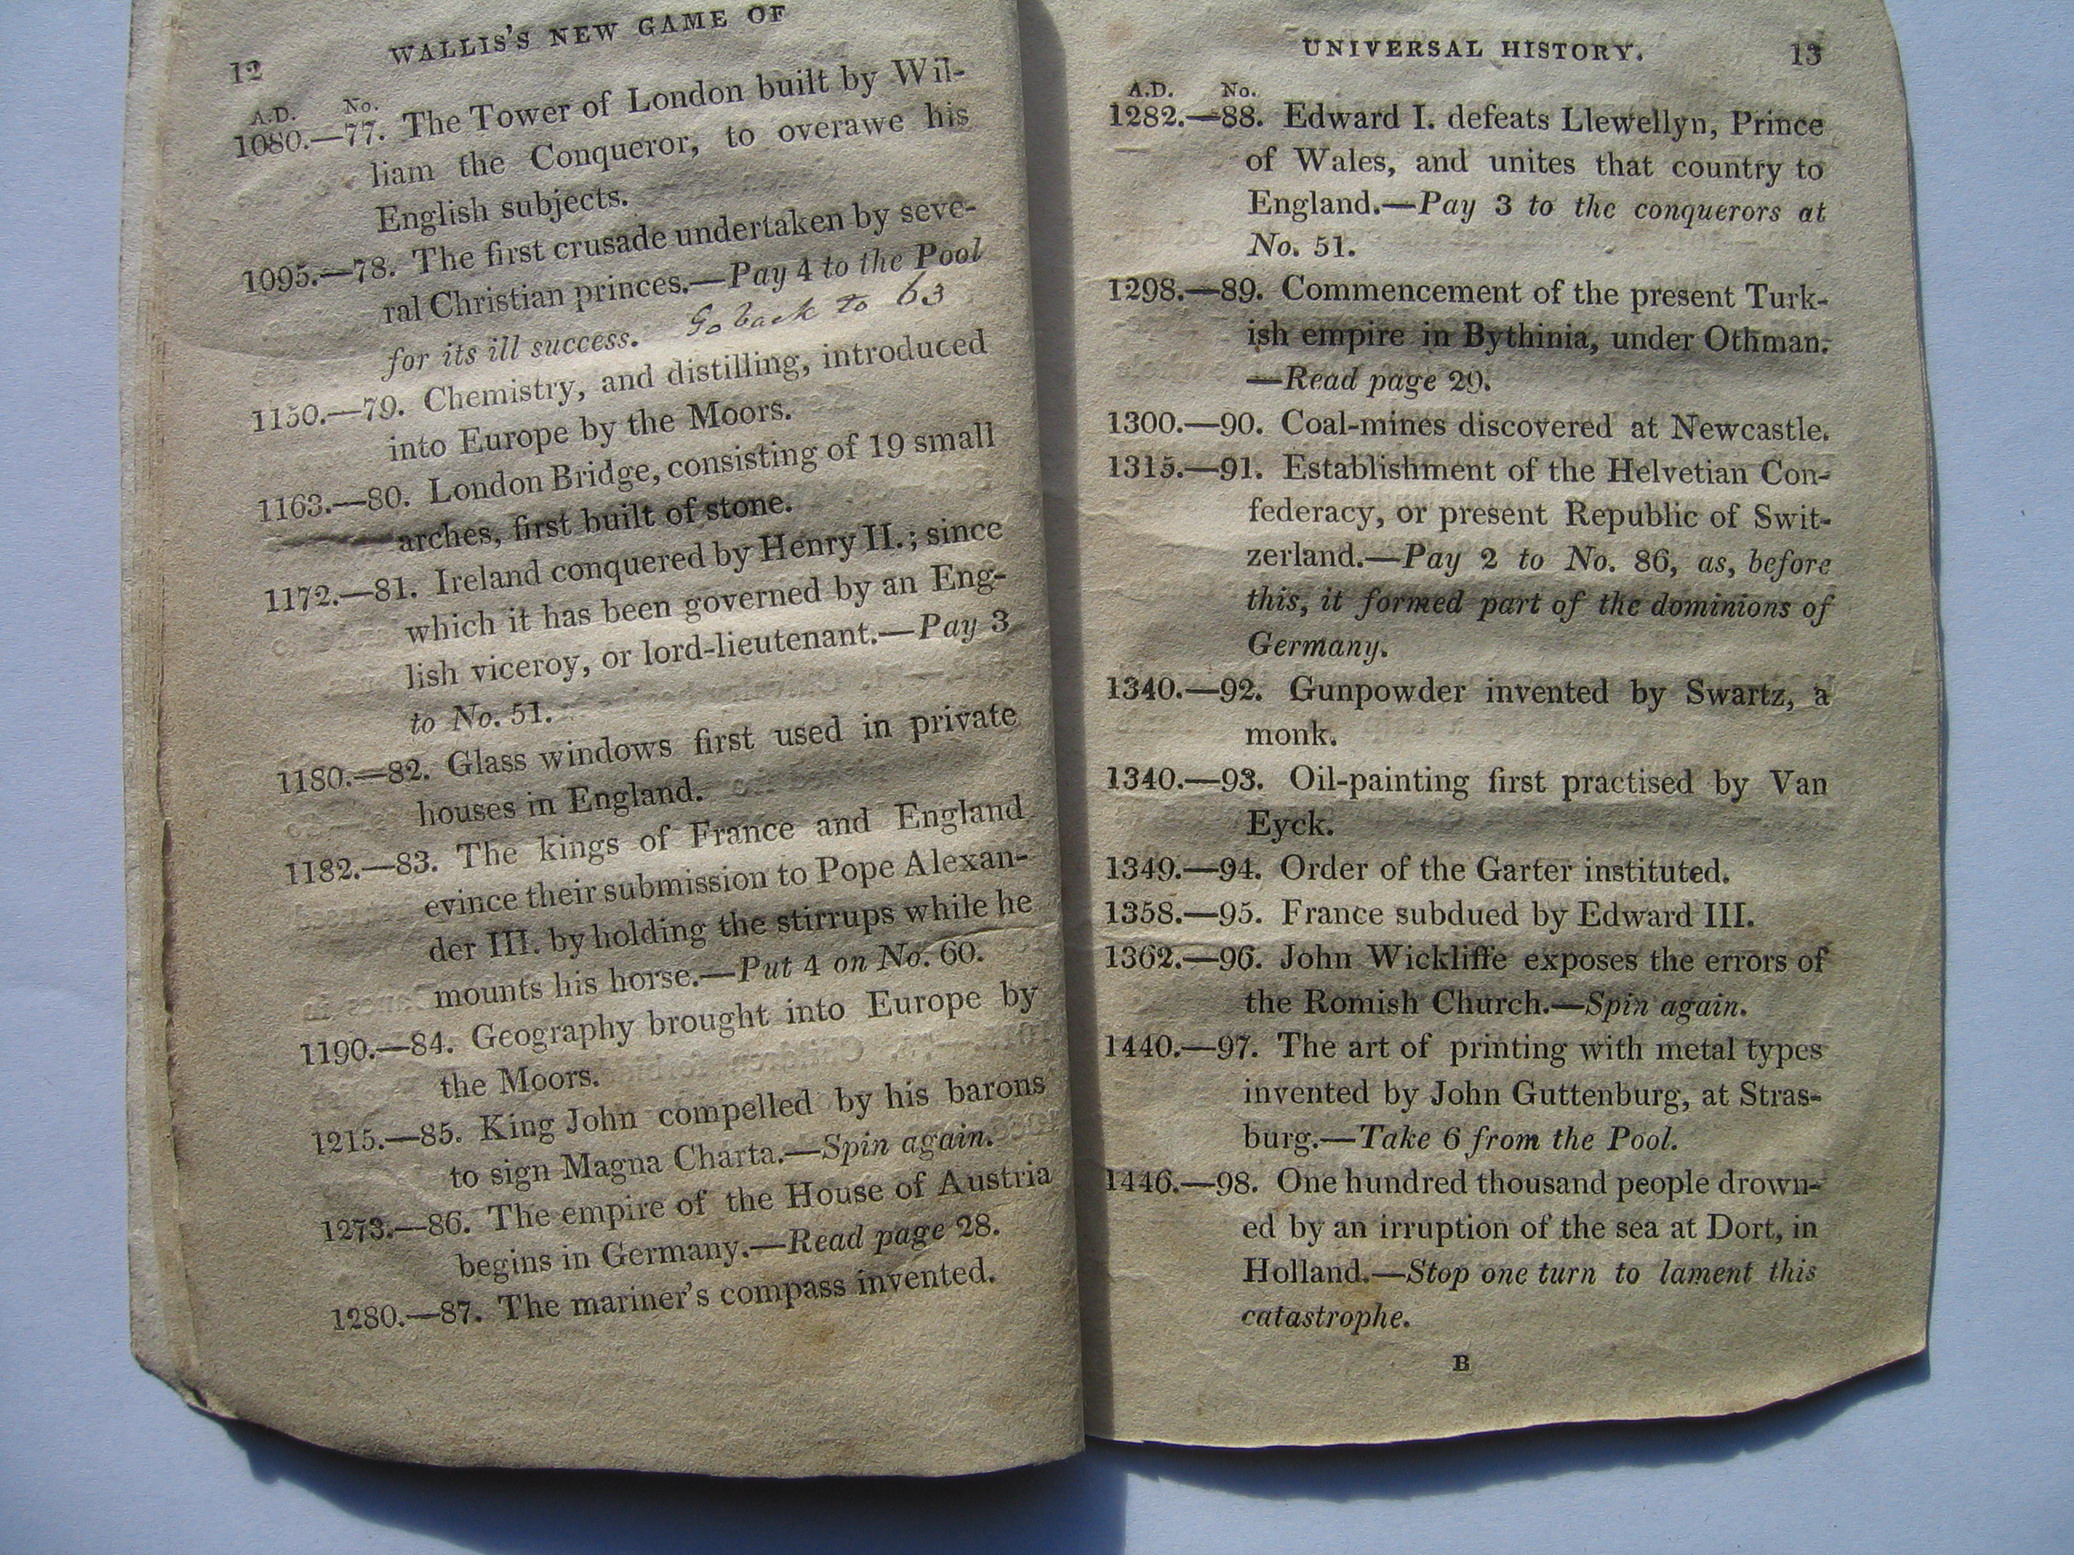 12 WALLIS'S NEW GAME OF
A.D. No.
1080.—77. The Tower of London built by Wil-
liam the Conqueror, to overawe his
English subjects.
1095.—78. The first crusade undertaken by seve-
ral Christian princes.—Pay 4 to the Pool
for its ill success. Go back to 63
1150.—79. Chemistry, and distilling, introduced
into Europe by the Moors.
1163.—80. London Bridge, consisting of 19 small
arches, first built of stone.
1172.—81. Ireland conquered by Henry II.; since
which it has been governed by an Eng-
lish viceroy, or lord-lieutenant.—Pay 3
to No. 51.
1180.—82. Glass windows first used in private
houses in England.
1182.—83. The kings of France and England
evince their submission to Pope Alexan-
der III. by holding the stirrups while he
mounts his horse.—Put 4 on No. 60.
1190.—84. Geography brought into Europe by
the Moors.
1215.—85. King John compelled by his barons
to sign Magna Charta.—Spin again.
1273.—86. The empire of the House of Austria
begins in Germany.—Read page 28.
1280.—87. The mariner's compass invented.
UNIVERSAL HISTORY. 13
A.D. No.
1282.—88. Edward I. defeats Llewellyn, Prince
of Wales, and unites that country to
England.—Pay 3 to the conquerors at
No. 51.
1298.—89. Commencement of the present Turk-
ish empire in Bythinia, under Othman.
—Read page 29.
1300.—90. Coal-mines discovered at Newcastle.
1315.—91. Establishment of the Helvetian Con-
federacy, or present Republic of Swit-
zerland.—Pay 2 to No. 86, as, before
this, it formed part of the dominions of
Germany.
1340.—92. Gunpowder invented by Swartz, a
monk.
1340.—93. Oil-painting first practised by Van
Eyck.
1349.—94. Order of the Garter instituted.
1358.—95. France subdued by Edward III.
1362.—96. John Wickliffe exposes the errors of
the Romish Church.—Spin again.
1440.—97. The art of printing with metal types
invented by John Guttenburg, at Stras-
burg.—Take 6 from the Pool.
1446.—98. One hundred thousand people drown-
ed by an irruption of the sea at Dort, in
Holland.—Stop one turn to lament this
catastrophe.
B